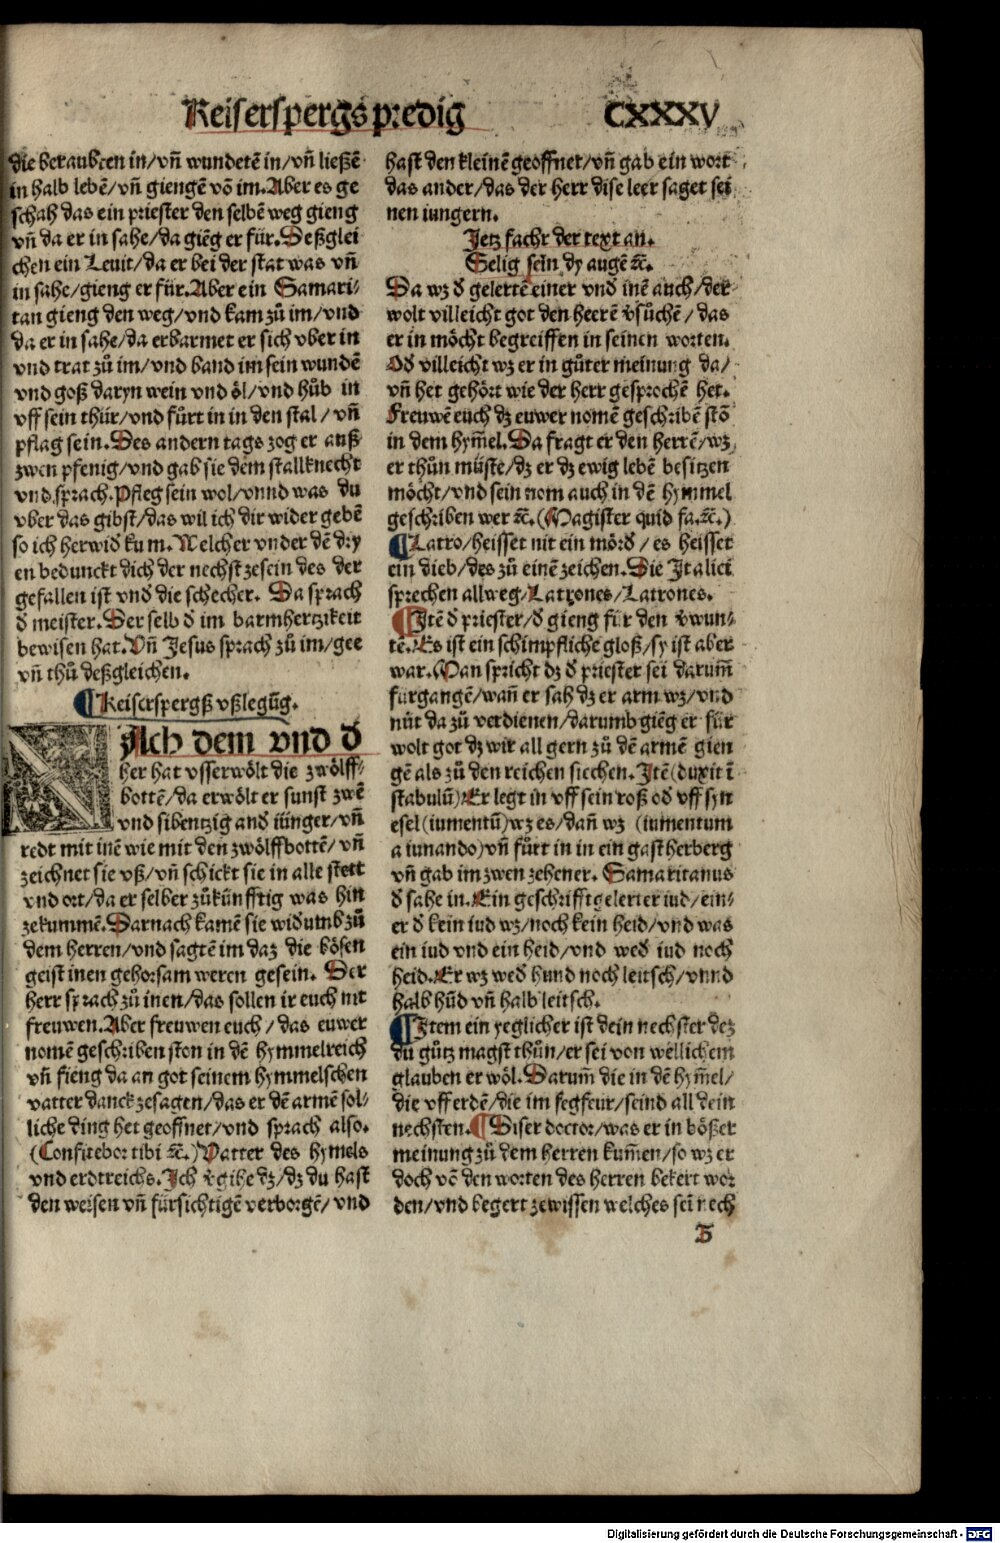 Keiserspergs predig CXXXV
die beraubten in/vñ wundetē in/vñ ließē
in halb lebē/vñ giengē vō im. Aber es ge
schah das ein priester den selbē weg gieng
vñ da er in sahe/da giēg er für. Deßglei
chen ein Leuit/da er bei der stat was vñ
in sahe/gieng er für. Aber ein Samari-
tan gieng den weg/vnd kam zů im/vnd
da er in sahe/da erbarmet er sich vber in
vnd trat zů im/vnd band im sein wundē
vnd goß daryn wein vnd öl/vnd hůb in
vff sein thür/vnd fůrt in in den stal/vñ
pflag sein. Des andern tags zog er auß
zwen pfenig/vnd gab sie dem stallknecht
vnd sprach. Pfleg sein wol/vnnd was du
vber das gibst/das wil ich dir wider gebē
so ich herwid kum. Welcher vnder dē dry
en bedunckt dich der nechst zesein des der
gefallen ist vnd die schecher. Da sprach
d meister. Der selb d im barmhertzikeit
bewisen hat. Vñ Jesus sprach zů im/gee
vñ thů deßgleichen.
¶Keiserspergß vßlegūg.
NAch dem vnd d
her hat vsserwölt die zwölff-
bottē/da erwölt er sunst zwē
vnd sibentzig and iünger/vñ
redt mit inē wie mit den zwölffbottē/vñ
zeichnet sie vß/vñ schickt sie in alle stett
vnd ort/da er selber zůkünfftig was hin
zekummē. Darnach kamē sie widumb zů
dem herren/vnd sagtē im daz die bösen
geist inen gehorsam weren gesein. Der
herr sprach zů inen/das sollen ir euch nit
freuwen. Aber freuwen euch/das euwer
nomē geschriben ston in dē hymmelreich
vñ fieng da an got seinem hymmelschen
vatter danck zesagen/das er dē armē söl-
liche ding het geoffnet/vnd sprach also.
(Confitebor tibi ꝛc.) Vatter des hymels
vnd erdtreichs. Ich vgihe dz/dz du hast
den weisen vñ fürsichtigē verborgē/vnd
hast den kleinē geoffnet/vñ gab ein wort
das ander/das der herr dise leer saget sei
nen iungern.
Jetz facht der text an.
Selig sein dy augē ꝛc.
Da wz d gelertē einer vnd inē auch/der
wolt villeicht got den heerē vsůchē/das
er in möcht begreiffen in seinen worten.
Od villeicht wz er in gůter meinung da/
vñ het gehört wie der herr gesprochē het.
Freuwē euch dz euwer nomē geschribē stō
in dem hym̄el. Da fragt er den herrē/wz
er thůn müste/dz er dz ewig lebē besitzen
möcht/vnd sein nom auch in dē hymmel
geschriben wer ꝛc. (Magister quid fa.ꝛc.)
¶Latro/heisset nit ein mörd/es heisset
ein dieb/des zů einē zeichen. Die Italici
sprechen allweg/Latrones/Latrones.
¶Itē d priester/d gieng für den vwun-
tē. Es ist ein schimpfliche gloß/sy ist aber
war. Man spricht dz d priester sei darum̄
fürgangē/wañ er sah dz er arm wz/vnd
nüt da zů verdienen/darumb giēg er für
wolt got dz wir all gern zů dē armē gien
gē als zů den reichen siechen. Itē (duxit ī
stabulū) Er legt in vff sein roß od vff syn
esel (iumentū) wz es/dañ wz (iumentum
a iuuando) vñ fůrt in in ein gastherberg
vñ gab im zwen zehener. Samaritanus
d sahe in. Ein geschrifftgelerter iud/ein-
er d kein iud wz/noch kein heid/vnd was
ein iud vnd ein heid/vnd wed iud noch
heid. Er wz wed hund noch leitsch/vnnd
halb hūd vñ halb leitsch.
¶Item ein yeglicher ist dein nechster dez
du gůtz magst thůn/er sei von wellichem
glauben er wöl. Darum̄ die in dē hym̄el/
die vff erdē/die im fegfeur/seind all dein
nechsten. ¶Diser doctor/was er in bößer
meinung zů dem herren kum̄en/so wz er
doch vō den worten des herren bekert wor
den/vnd begert zewissen welches sei nech
Digitalisierung gefördert durch die Deutsche Forschungsgemeinschaft - DFG